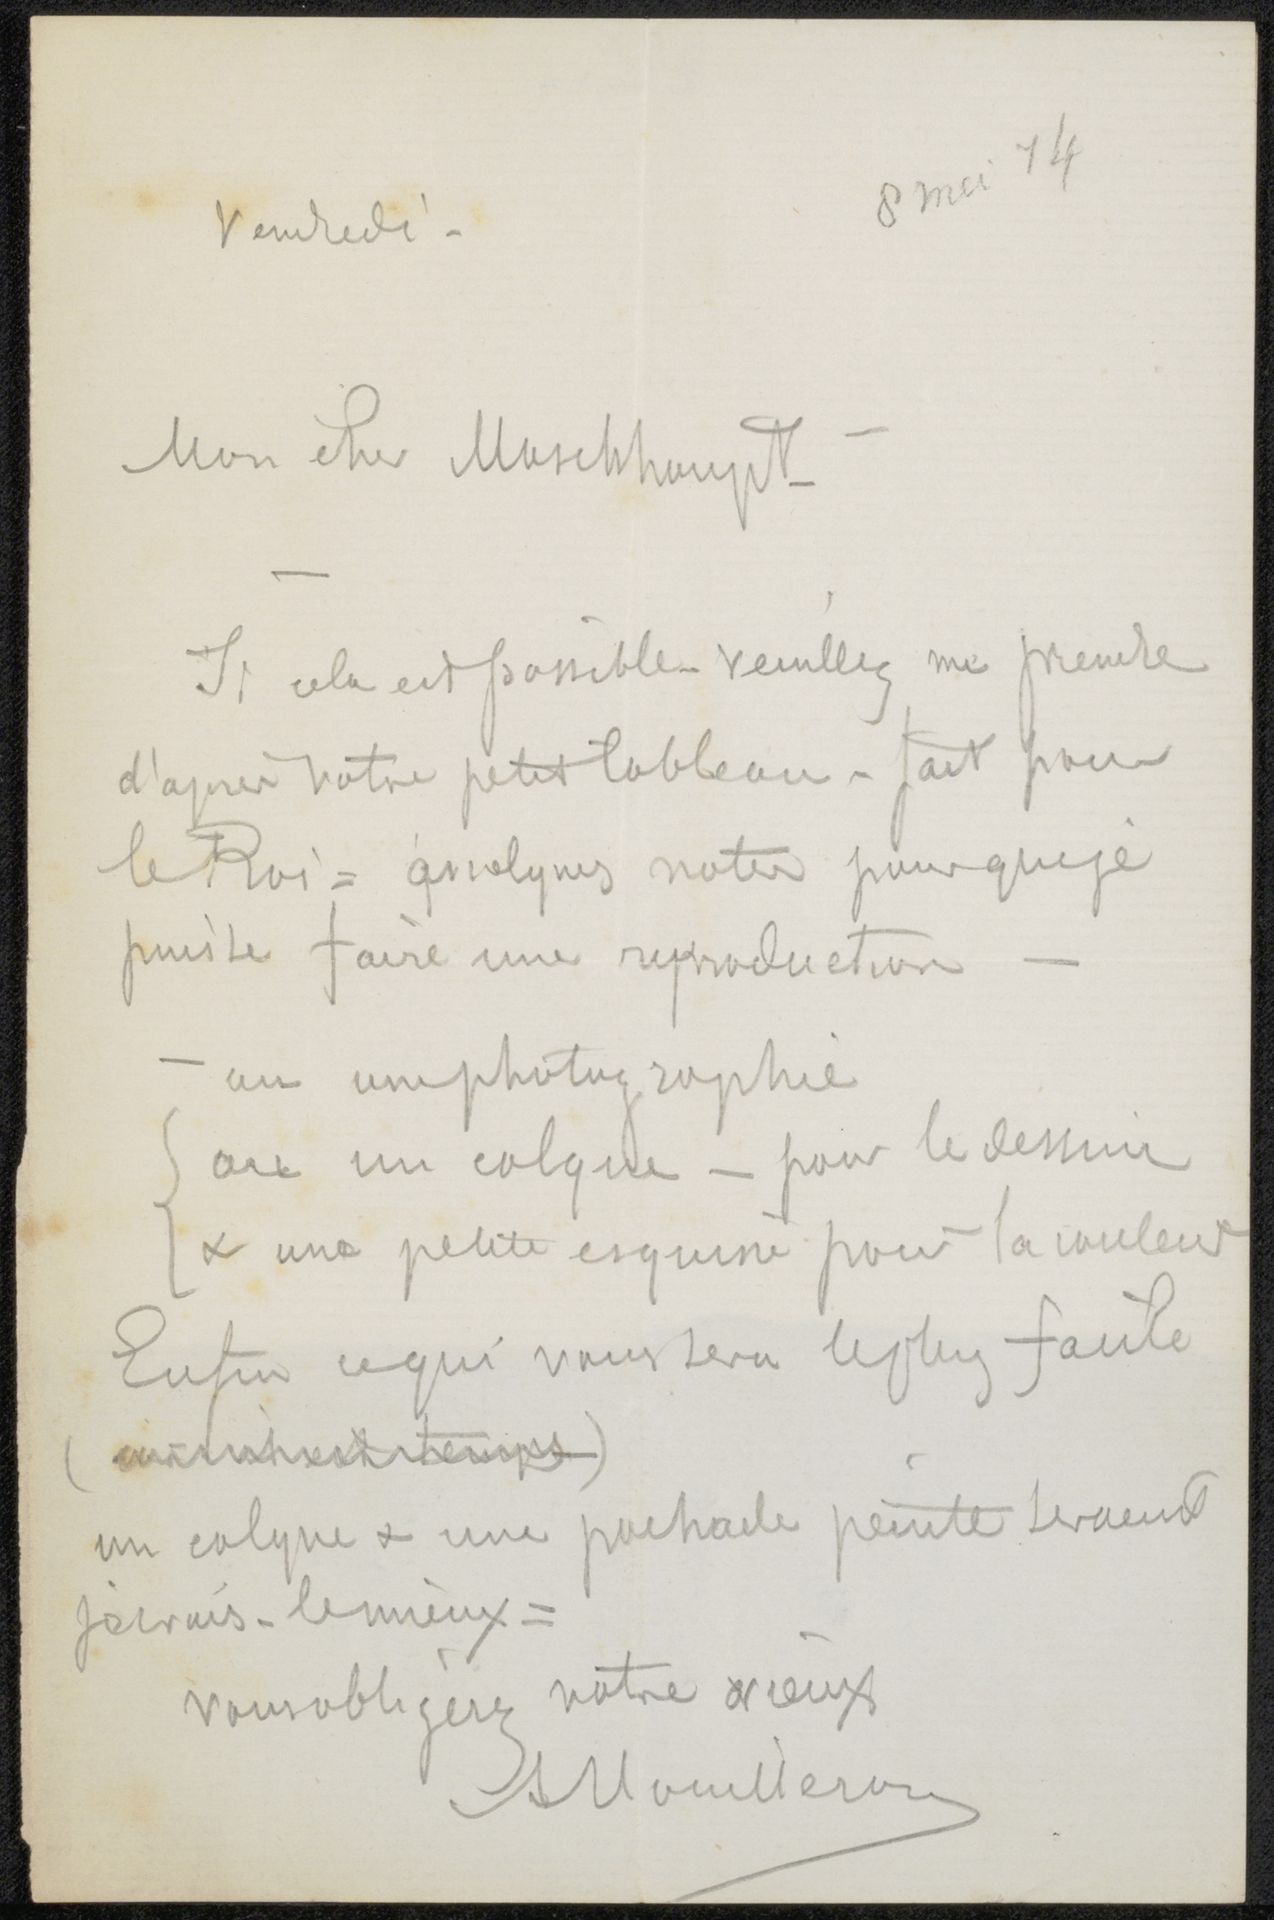 8 mei 74
Vendredi -
Mon cher Maschhaupt -
Si cela est possible - veuillez me prendre
d'après votre petit tableau - fait pour
le Roi = quelques notes pour que je
puisse faire une reproduction -
- ou une photographie
ou un calque - pour le dessin
& une petite esquisse pour la couleur
Enfin ce qui vous sera le plus facile
un calque & une pochade peinte seraient
je crois - le mieux =
vous obligerez votre vieux
A Mouilleron